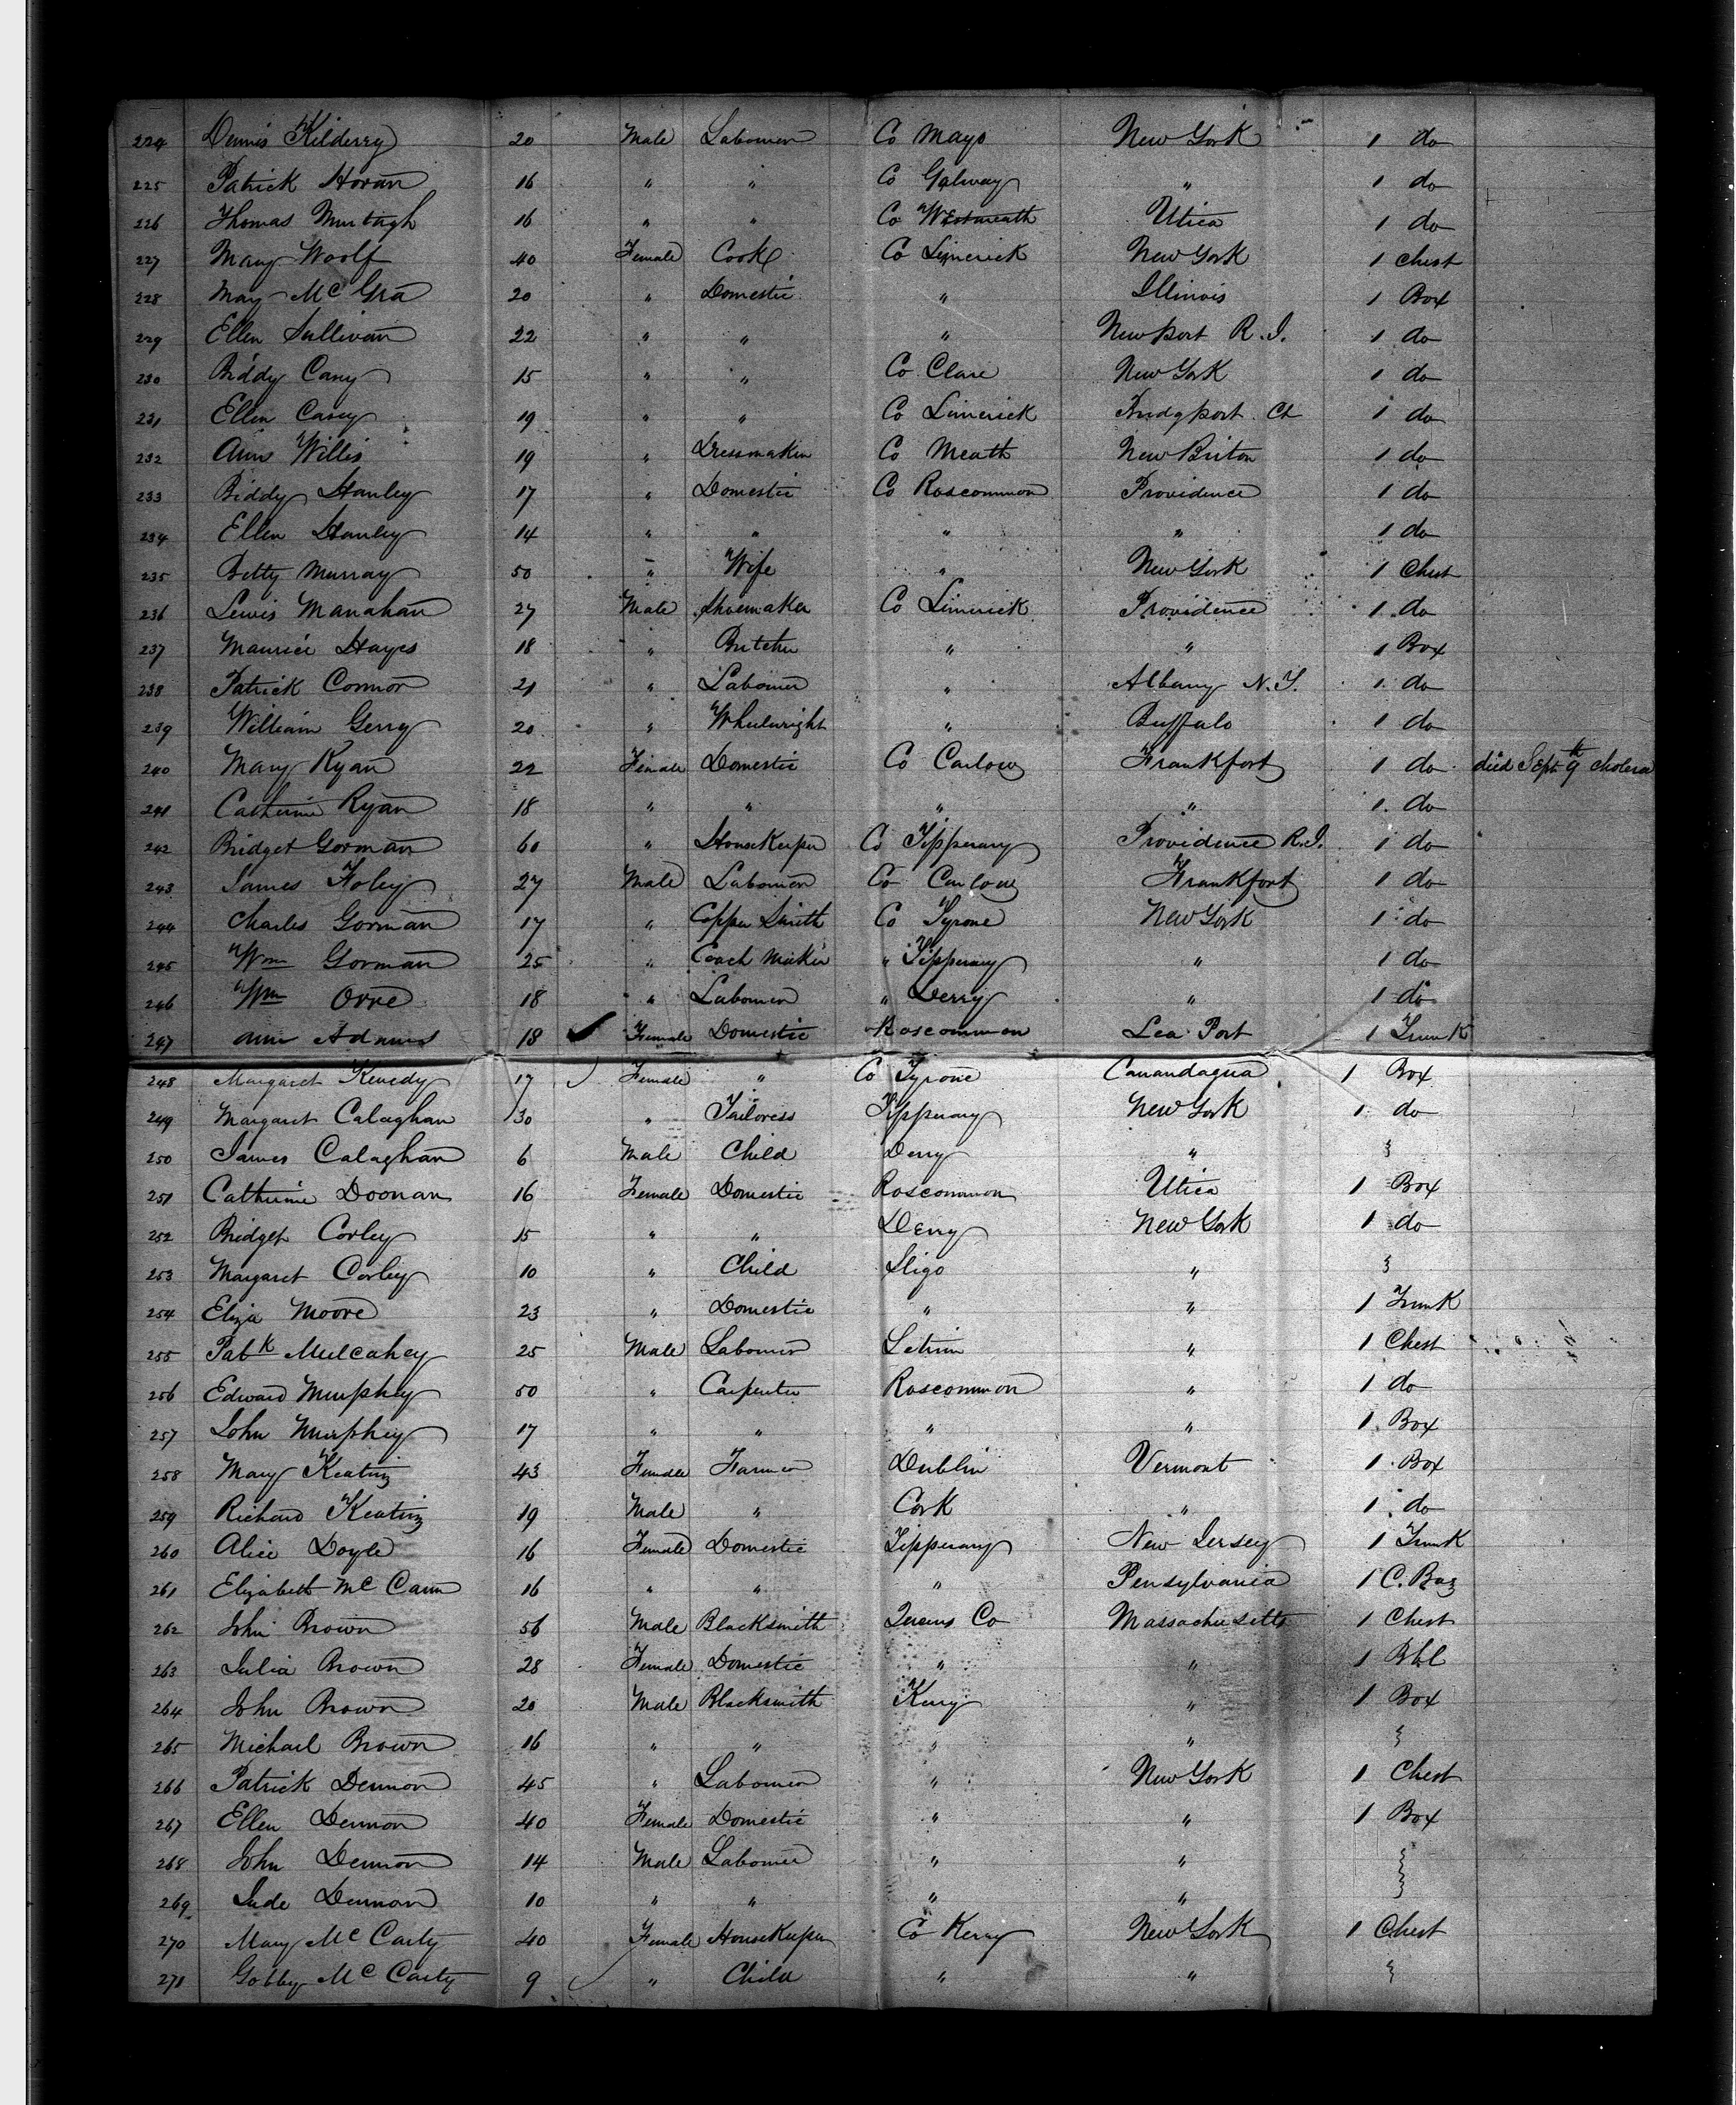 224 Dennis Kilderry 20 Male Labourer Co Mayo New York 1 do
225 Patrick Horan 16 " " Co Galway " 1 do
226 Thomas Murtagh 16 " " Co Westmeath Utica 1 do
227 Mary Woolf 40 Female Cook Co Limerick New York 1 Chest
228 Mary McGra 20 " Domestic " Illinois 1 Box
229 Ellen Sullivan 22 " " " Newport R.I. 1 do
230 Biddy Casey 15 " " Co Clare New York 1 do
231 Ellen Casey 19 " " Co Limerick Bridgport Ct 1 do
232 Ann Willis 19 " Dressmaker Co Meath New Briton 1 do
233 Biddy Hanley 17 " Domestic Co Roscommon Providence 1 do
234 Ellen Hanley 14 " " " " 1 do
235 Betty Murray 50 " Wife " New York 1 Chest
236 Lewis Manahan 27 Male Shoemaker Co Limerick Providence 1 do
237 Maurice Hayes 18 " Butcher " " 1 Box
238 Patrick Connor 21 " Labourer " Albany N.Y. 1 do
239 William Gerry 20 " Wheelwright " Buffalo 1 do
240 Mary Ryan 22 Female Domestic Co Carlow Frankfort 1 do died Sept 9th cholera
241 Catherine Ryan 18 " " " " 1 do
242 Bridget Gorman 60 " HouseKeeper Co Tipperary Providence R.I. 1 do
243 James Foley 27 Male Labourer Co Carlow Frankfort 1 do
244 Charles Gorman 17 " Copper Smith Co Tyrone New York 1 do
245 Wm Gorman 25 " Coach Maker " Tipperary " 1 do
246 Wm Orre 18 " Labourer " Derry " 1 do
247 Ann Adams 18 Female Domestic Roscommon Lea Port 1 Trunk
248 Margaret Kenedy 17 Female " Co Tyrone Canandagua 1 Box
249 Margaret Calaghan 30 " Tailoress Tipperary New York 1 do
250 James Calaghan 6 Male Child Derry "
251 Catherine Doonan 16 Female Domestic Roscommon Utica 1 Box
252 Bridget Corley 15 " " Derry New York 1 do
253 Margaret Corley 10 " Child Sligo "
254 Eliza Moore 23 " Domestic " " 1 Trunk
255 Patk Mulcahey 25 Male Labourer Letrim " 1 Chest
256 Edward Murphey 50 " Carpenter Roscommon " 1 do
257 John Murphey 17 " " " " 1 Box
258 Mary Keating 43 Female Farmer Dublin Vermont 1 Box
259 Richard Keating 19 Male " Cork " 1 do
260 Alice Doyle 16 Female Domestic Tipperary New Jersey 1 Trunk
261 Elizabeth McCann 16 " " " Pensylvania 1 C. Bag
262 John Brown 56 Male Blacksmith Queens Co Massachusetts 1 Chest
263 Julia Brown 28 Female Domestic " " 1 Bbl
264 John Brown 20 Male Blacksmith Kerry " 1 Box
265 Michael Brown 16 " " " "
266 Patrick Dennon 45 " Labourer " New York 1 Chest
267 Ellen Dennon 40 Female Domestic " " 1 Box
268 John Dennon 14 Male Labourer " "
269 Jude Dennon 10 " " " "
270 Mary McCarty 40 Female HouseKeeper Co Kerry New York 1 Chest
271 Gobby McCarty 9 " Child " "